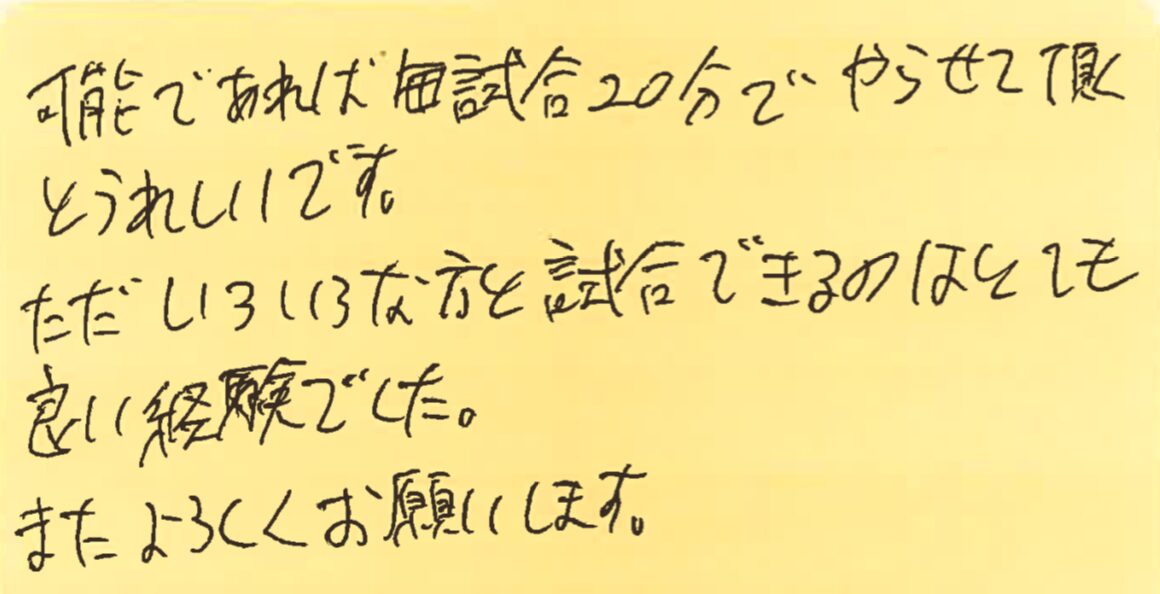 可能であれば毎試合20分でやらせて頂く
とうれしいです。
ただいろいろな方と試合できるのはとても
良い経験でした。
またよろしくお願いします。